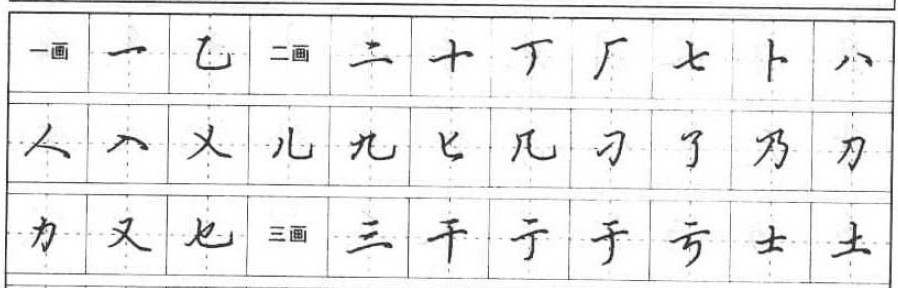 一画 一 乙 二画 二 十 丁 厂 七 卜 八
人 入 乂 儿 九 匕 几 刁 了 乃 刀
力 又 乜 三画 三 干 亍 于 亏 士 土